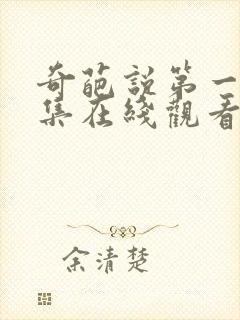 奇葩説第一
集在綫觀看
余清楚